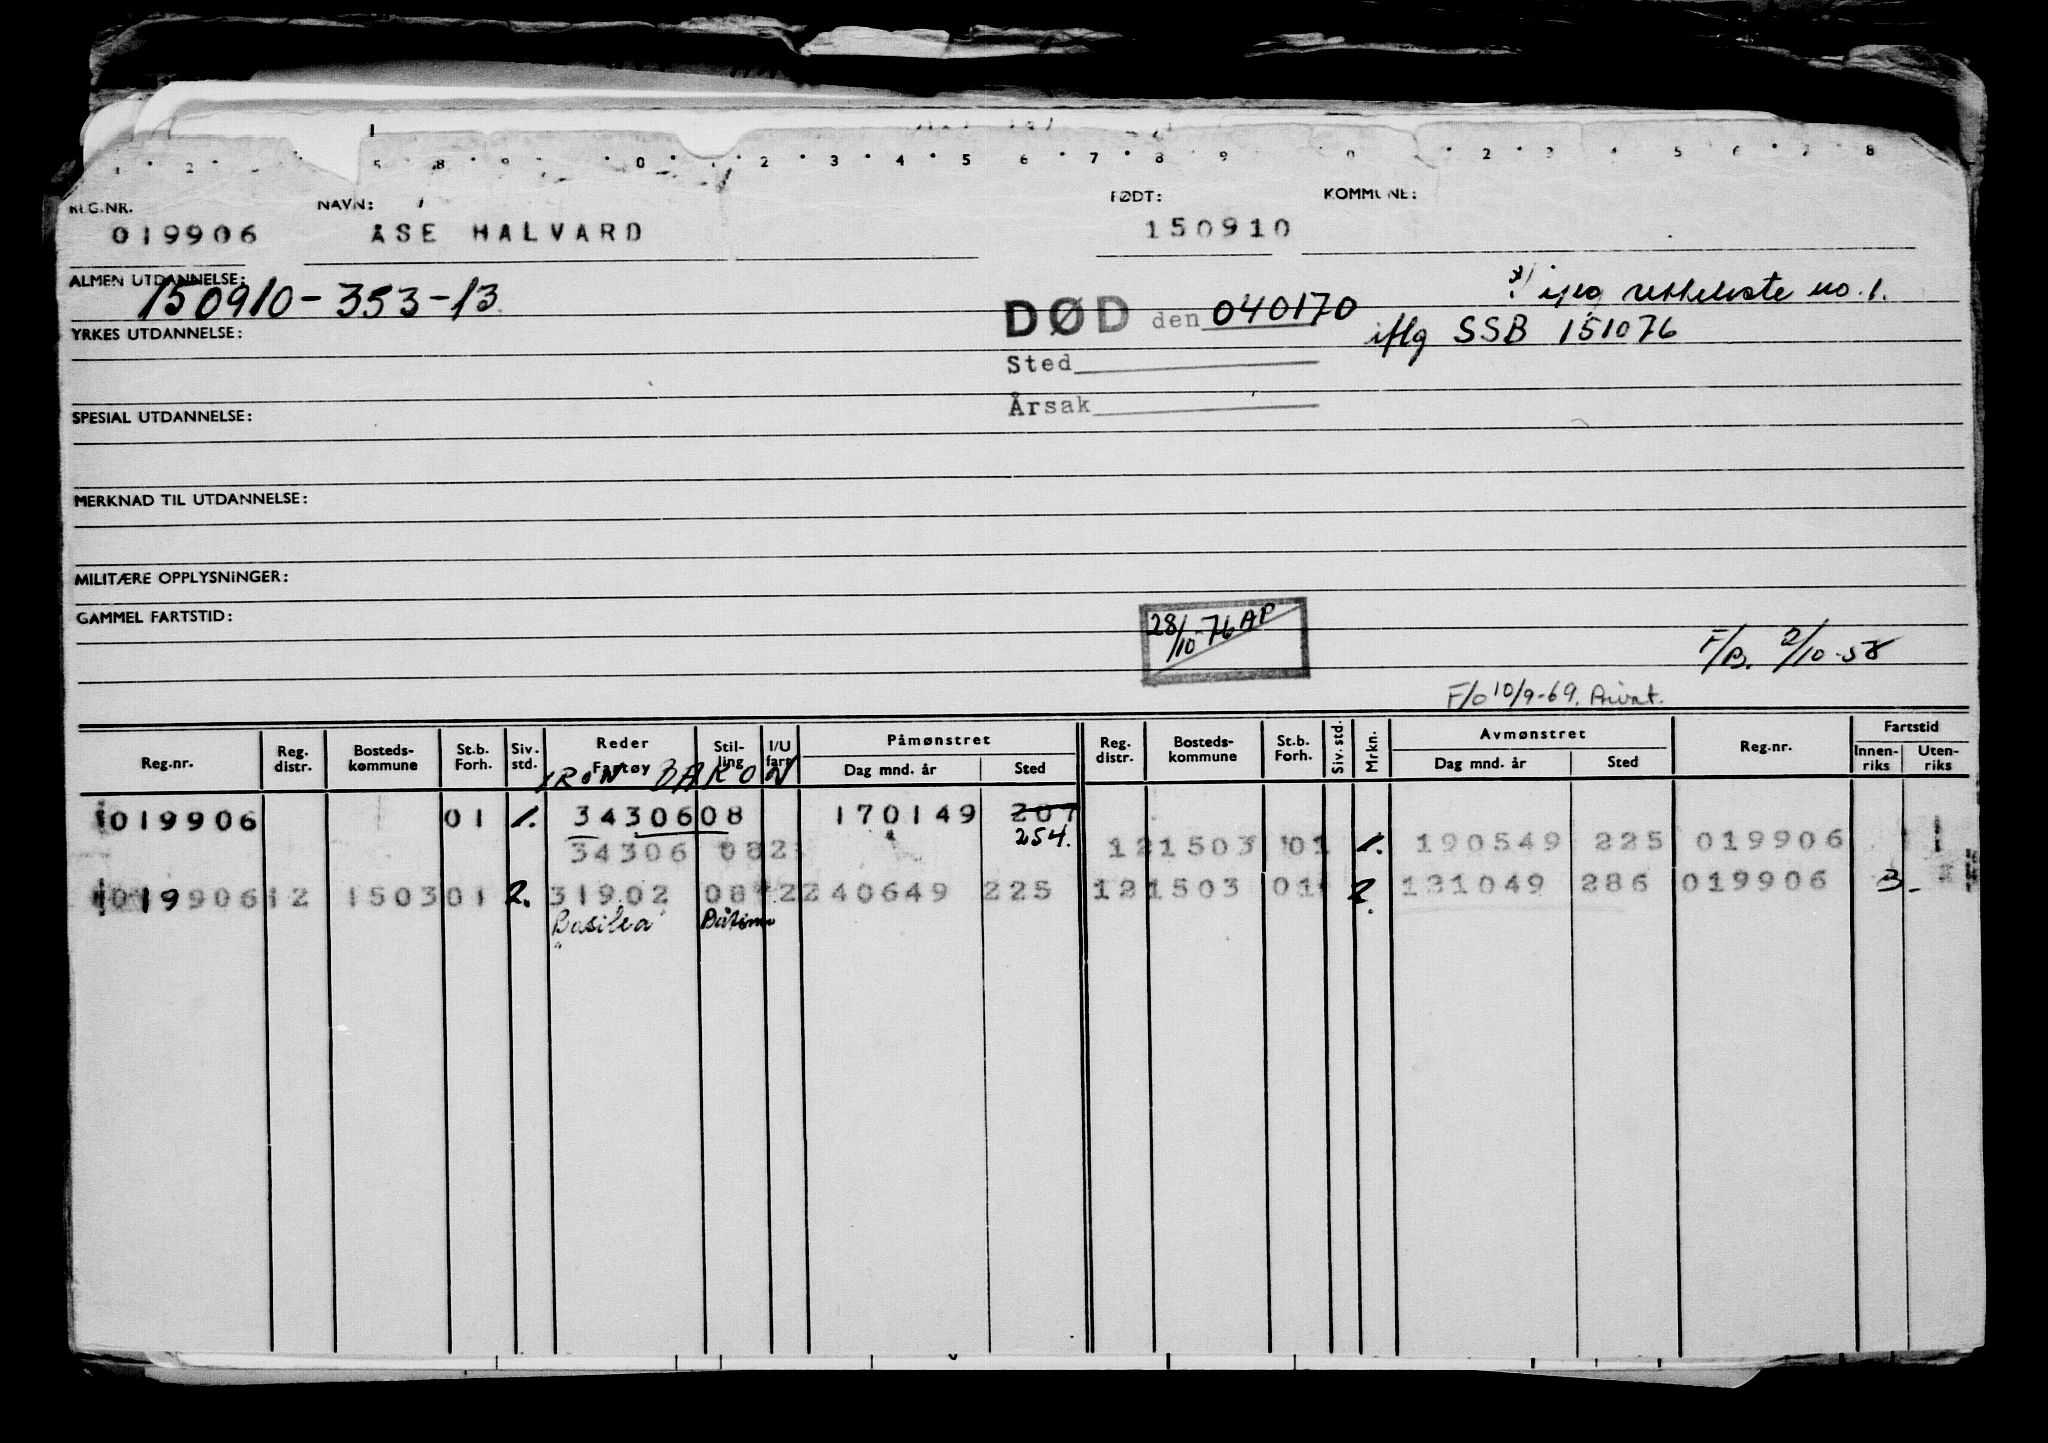 REG.NR. NAVN: FØDT: KOMMUNE:
019906 ÅSE HALVARD 150910
ALMEN UTDANNELSE:
150910-353-13
DØD den 040170
iflg SSB 151076
YRKES UTDANNELSE:
Sted
Årsak
SPESIAL UTDANNELSE:
MERKNAD TIL UTDANNELSE:
MILITÆRE OPPLYSNINGER:
GAMMEL FARTSTID:
28/10-76 AP
F/B. 2/10-58
F/O 10/9-69. Privat.
Reg.nr. Reg. distr. Bosteds- kommune St.b. Forh. Siv. std. Reder Fartøy Stil- ling I/U fart Påmønstret Dag mnd. år Sted Reg. distr. Bosteds- kommune St.b. Forh. Siv. std. Mrkn. Avmønstret Dag mnd. år Sted Reg.nr. Fartstid Innen- riks Uten- riks
IRON BARON
019906 01 1. 3430608 170149 207
254.
34306 082 121503 01 1. 190549 225 019906
019906 12 1503 01 2. 31902 08 2 240649 225 121503 01 2. 131049 286 019906 3-
"Basilea" Båtsm